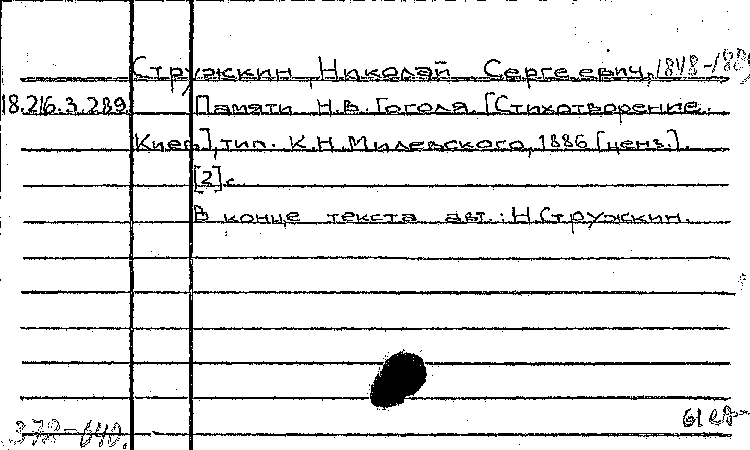 Стружкин, Николай Сергеевич, 1848-1889
18.216.3.289 Памяти Н.В. Гоголя. [Стихотворение.
Киев], тип. К.Н. Милевского, 1886 [ценз.].
[2] с.
В конце текста авт.: Н. Стружкин.
372-640.